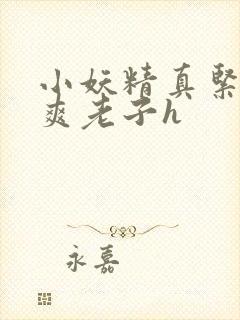 小妖精真緊
爽老子h
永嘉